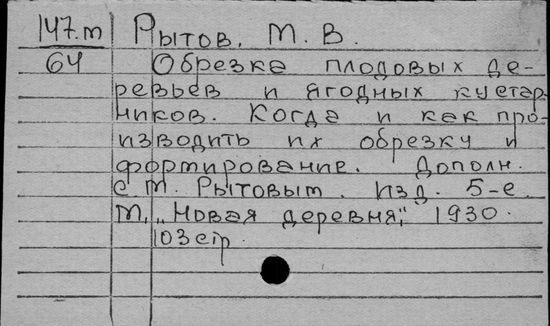 147.m Рытов, М. В.
64 Обрезка плодовых де-
ревьев и ягодных кустар-
ников. Когда и как про-
изводить их обрезку и
формирование. Дополн.
с М. Рытовым. Изд. 5-е.
М., „Новая деревня," 1930.
103 стр.